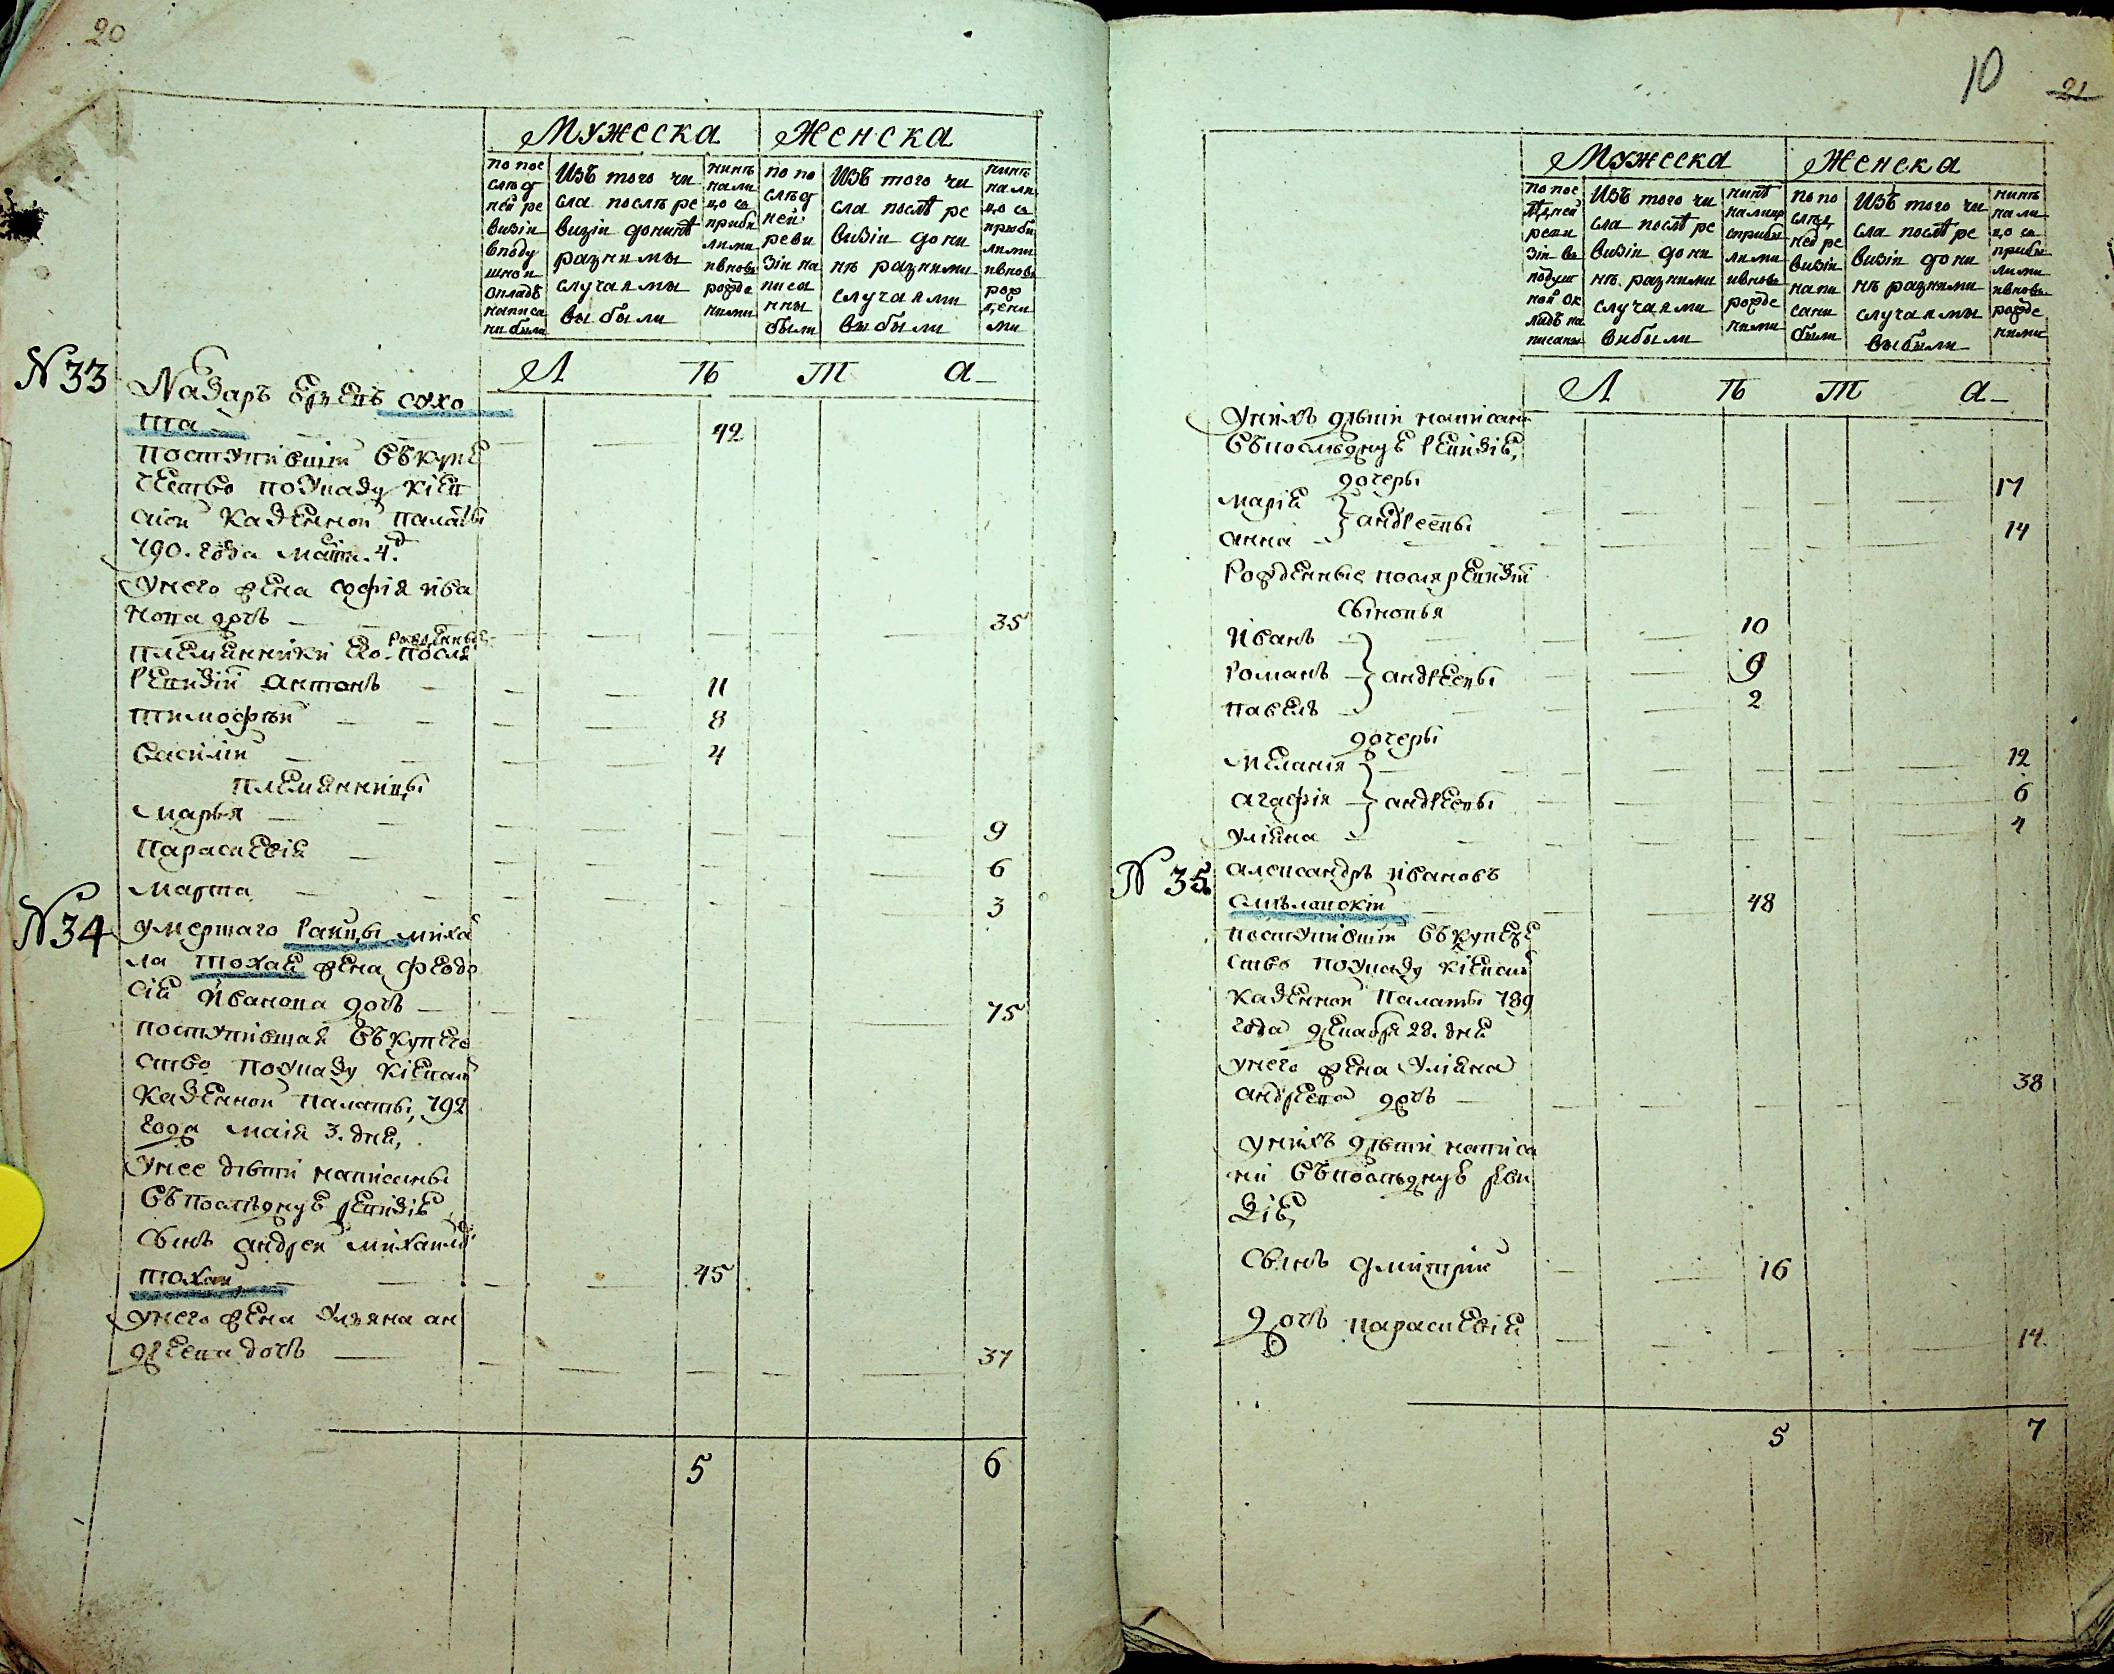 20
Мужеска Женска
по пос
лѣд
ней ре
визіи
вподу
шном
окладѣ
написа
ни были
Изъ того чи
сла послѣ ре
визіи донинѣ
разними
случаями
выбыли
нинѣ
нали
цо съ
прибы
лими
ивновь
рожде
ними
по по
слѣд
ней
реви
зіи на
писа
нны
были
Изъ того чи
сла послѣ ре
визіи дони
нѣ разними
случаями
выбыли
нинѣ
нали
цо съ
прибы
лими
ивновь
рож
дени
ми
Л ТЬ Т А
N 33
Назаръ
сухо
та 42
поступившій въ купе
чество поуказу кіев
ской казенной палаты
790. года маія. 4.д
унего жена софія ива
нова дочь 35
племянники его рожденные после
ревизіи антонъ 11
тимофей 8
василій 4
племянницы
марья 9
параскевія 6
марфа 3
N 34
умершаго райцы миха
ла тохая жена феодо
сія иванова дочь 75
поступившая въ купече
ство поуказу кіевской
казенной палаты, 792
года маія 3. дня,
унее дѣти написаны
въ последнуе ревизіе
сынъ андрей михаилов
тохай, 45
унего жена уляна ан
дреева дочь 37
5 6
10
21
Мужеска Женска
по пос
лѣдней
реви
зіи въ
подуш
ной ок
ладѣ на
писаны
Изъ того чи
сла послѣ ре
визіи дони
нѣ разними
случаями
вибыли
нинѣ
налицо
сприбы
лими
ивновь
рожде
ними
по по
слѣд
ней ре
визіи
напи
сани
были
Изъ того чи
сла послѣ ре
визіи дони
нѣ разними
случаями
выбыли
нинѣ
нали
цо съ
прибы
лими
ивновь
рожде
ними
Л ТЬ Т А
унихъ дѣти написани
въ последнуе ревизіе,
дочеры
марія 17
андреевы
анна 14
рожденные после ревизіи
сыновья
иванъ 10
романъ андреевы 9
павелъ 2
дочеры
меланія 12
агафія андреевы 6
уліяна 4
N 35
александръ ивановъ
смѣланскій 48
поступившій въ купече
ство поуказу кіевской
казенной палаты 789
года декабря 28. дня
унего жена уліяна
андреева дочь 38
унихъ дѣти написа
ни въ последнуе реви
зіе,
сынъ дмитрій 16
дочь параскевія 14.
5 7